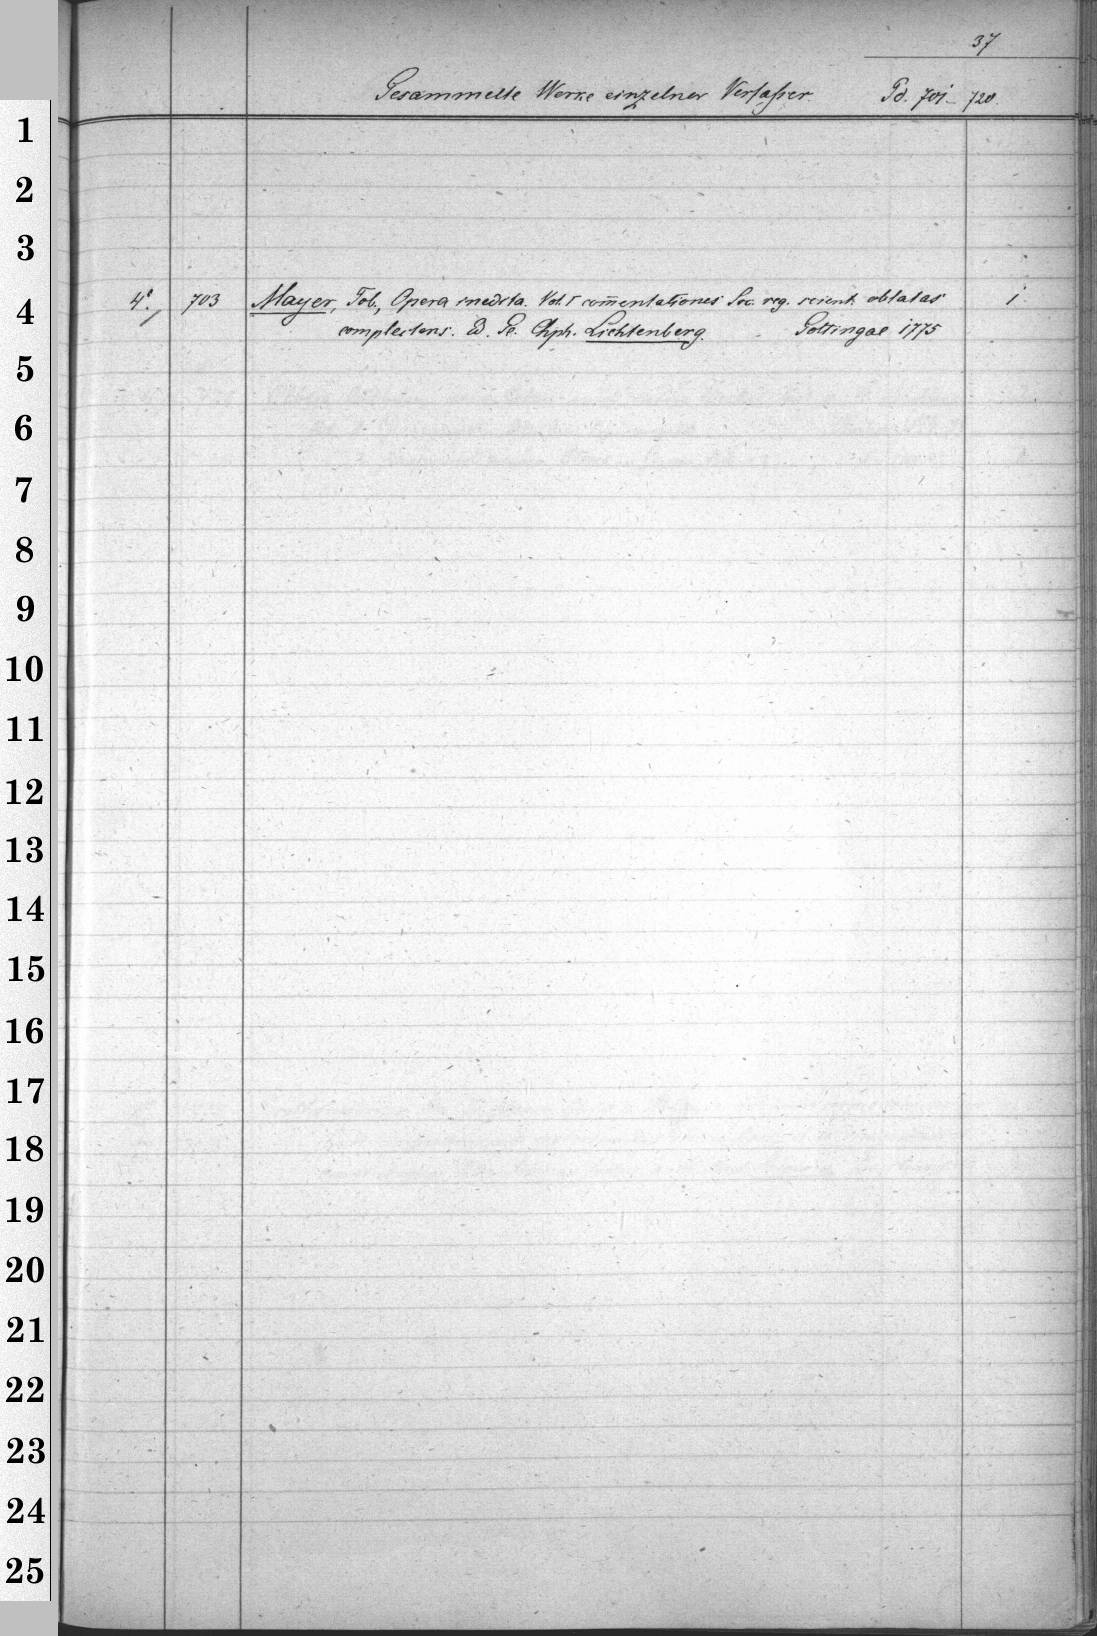 37
Gesammelte Werke einzelner Verfasser Pd. 701-720.
1
2
3
4°. 703 Mayer, Tob., Opera inedita. Vol. I com̄entationes Soc. reg. scient. oblatas 1
4
complectens. Ed. Ge. Chph. Lichtenberg. Gottingae 1775
5
6
7
8
9
10
11
12
13
14
15
16
17
18
19
20
21
22
23
24
25